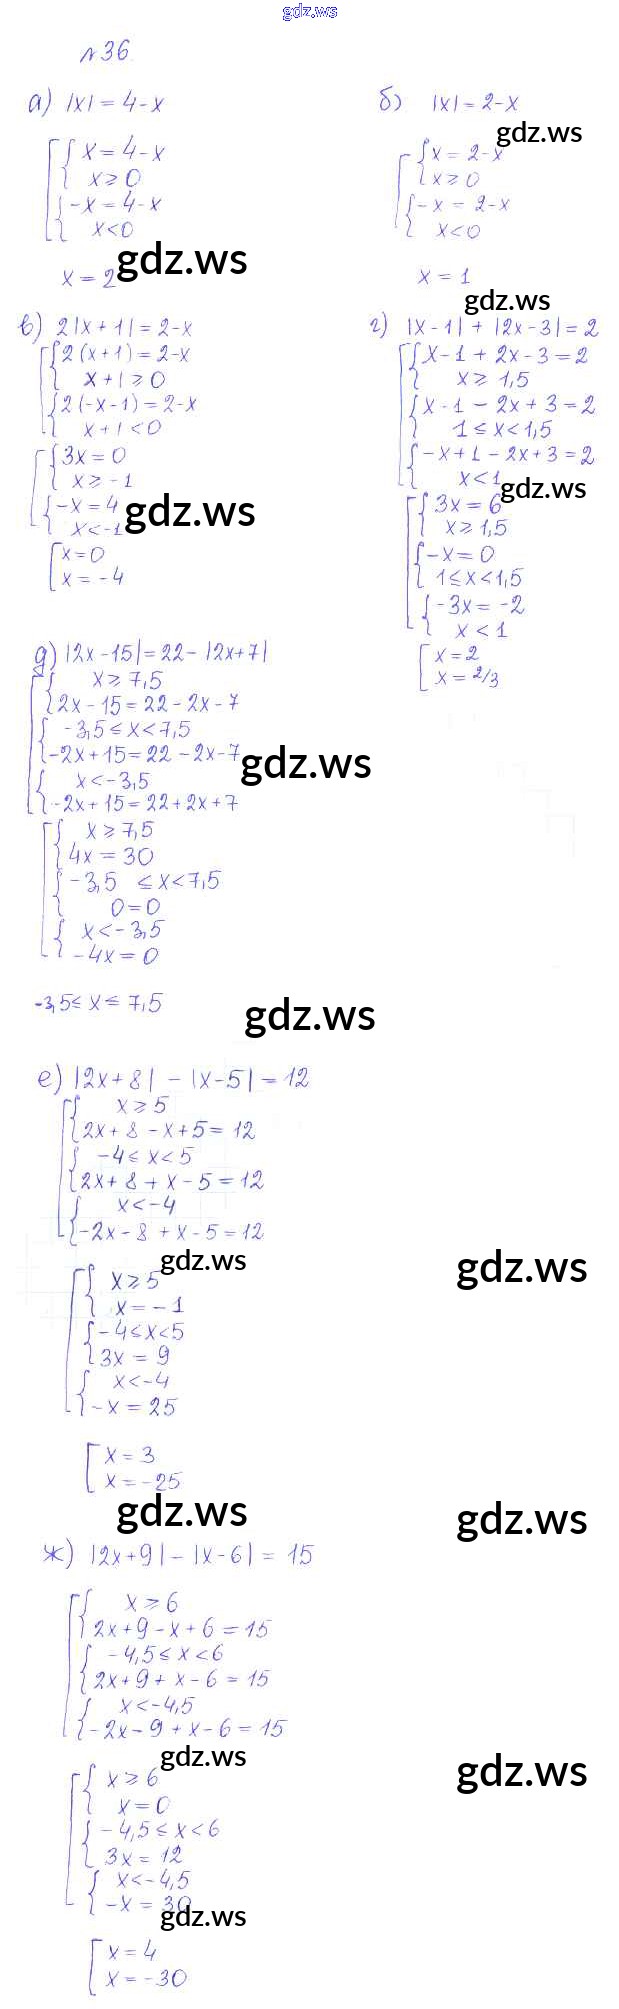 gdz.ws
№36.
а) |x| = 4-x
x = 4-x
x ≥ 0
-x = 4-x
x<0
gdz.ws
x = 2
б) |x| = 2-x
gdz.ws
x = 2-x
x ≥ 0
-x = 2-x
x<0
x = 1
gdz.ws
в) 2|x+1| = 2-x
2(x+1) = 2-x
x+1 ≥ 0
2(-x-1) = 2-x
x+1 <0
3x = 0
x ≥ -1
-x = 4
x<-1
gdz.ws
x = 0
x = -4
г) |x-1| + |2x-3| = 2
x-1 + 2x-3 = 2
x ≥ 1,5
x-1 - 2x+3 = 2
1 ≤ x<1,5
-x+1 - 2x+3 = 2
x<1
gdz.ws
3x = 6
x ≥ 1,5
-x = 0
1 ≤ x<1,5
-3x = -2
x < 1
x = 2
x = 2/3
д) |2x-15| = 22 - |2x+7|
x ≥ 7,5
2x-15 = 22-2x-7
-3,5 ≤ x<7,5
-2x+15 = 22-2x-7
x<-3,5
-2x+15 = 22+2x+7
gdz.ws
x ≥ 7,5
4x = 30
-3,5 ≤ x<7,5
0 = 0
x<-3,5
-4x = 0
-3,5 ≤ x ≤ 7,5
gdz.ws
е) |2x+8| - |x-5| = 12
x ≥ 5
2x+8-x+5 = 12
-4 ≤ x<5
2x+8+x-5 = 12
x<-4
-2x-8+x-5 = 12
gdz.ws
gdz.ws
x ≥ 5
x = -1
-4 ≤ x<5
3x = 9
x<-4
-x = 25
x = 3
x = -25
gdz.ws
gdz.ws
ж) |2x+9| - |x-6| = 15
x ≥ 6
2x+9-x+6 = 15
-4,5 ≤ x<6
2x+9+x-6 = 15
x<-4,5
-2x-9+x-6 = 15
gdz.ws
gdz.ws
x ≥ 6
x = 0
-4,5 ≤ x<6
3x = 12
x<-4,5
-x = 30
gdz.ws
x = 4
x = -30